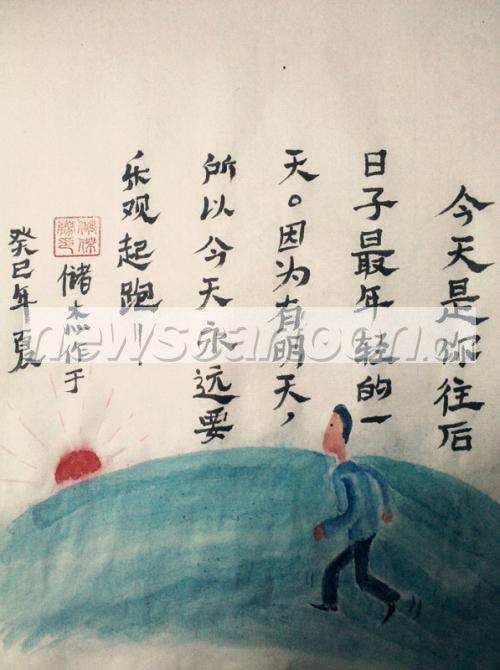 今天是你往后
日子最年轻的一
天。因为有明天，
所以今天永远要
乐观起跑！！
储杰作于
癸巳年夏